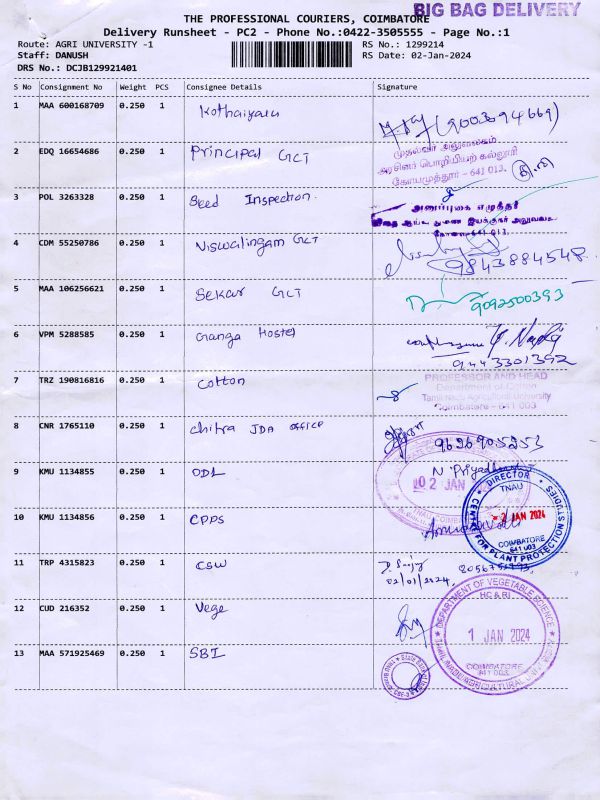 BIG BAG DELIVERY
THE PROFESSIONAL COURIERS, COIMBATORE
Delivery Runsheet - PC2 - Phone No.:0422-3505555 - Page No.:1
Route: AGRI UNIVERSITY -1
RS No.: 1299214
Staff: DANUSH
RS Date: 02-Jan-2024
DRS No.: DCJB129921401
S No Consignment No Weight PCS Consignee Details Signature
1 MAA 600168709 0.250 1 Kothaiyaru
(9003394669)
2 EDQ 16654686 0.250 1 Principal GCT
முதல்வர் அலுவலகம்
அரசினர் பொறியியற் கல்லூரி
கோயமுத்தூர் - 641 013.
3 POL 3263328 0.250 1 Seed Inspection.
கோவை-641 013.
4 CDM 55250786 0.250 1 Viswalingam GCT
9843884548
5 MAA 106256621 0.250 1 Sekar GCT
9092500393
6 VPM 5288585 0.250 1 Ganga Hostel
9443301392
7 TRZ 190816816 0.250 1 Cotton
PROFESSOR AND HEAD
Department of Cotton
Tamil Nadu Agricultural University
Coimbatore - 641 003
8 CNR 1765110 0.250 1 Chitra JDA OFFICE
9626905253
9 KMU 1134855 0.250 1 ODL
02 JAN
DIRECTOR
TNAU
CENTRE FOR PLANT PROTECTION STUDIES
2 JAN 2024
COIMBATORE
641 003
10 KMU 1134856 0.250 1 CPPS
11 TRP 4315823 0.250 1 CSW
02/01/2024,
12 CUD 216352 0.250 1 Vege
DEPARTMENT OF VEGETABLE SCIENCE
HC & RI
1 JAN 2024
COIMBATORE
641 003.
TAMIL NADU AGRICULTURAL UNIVERSITY
13 MAA 571925469 0.250 1 SBI